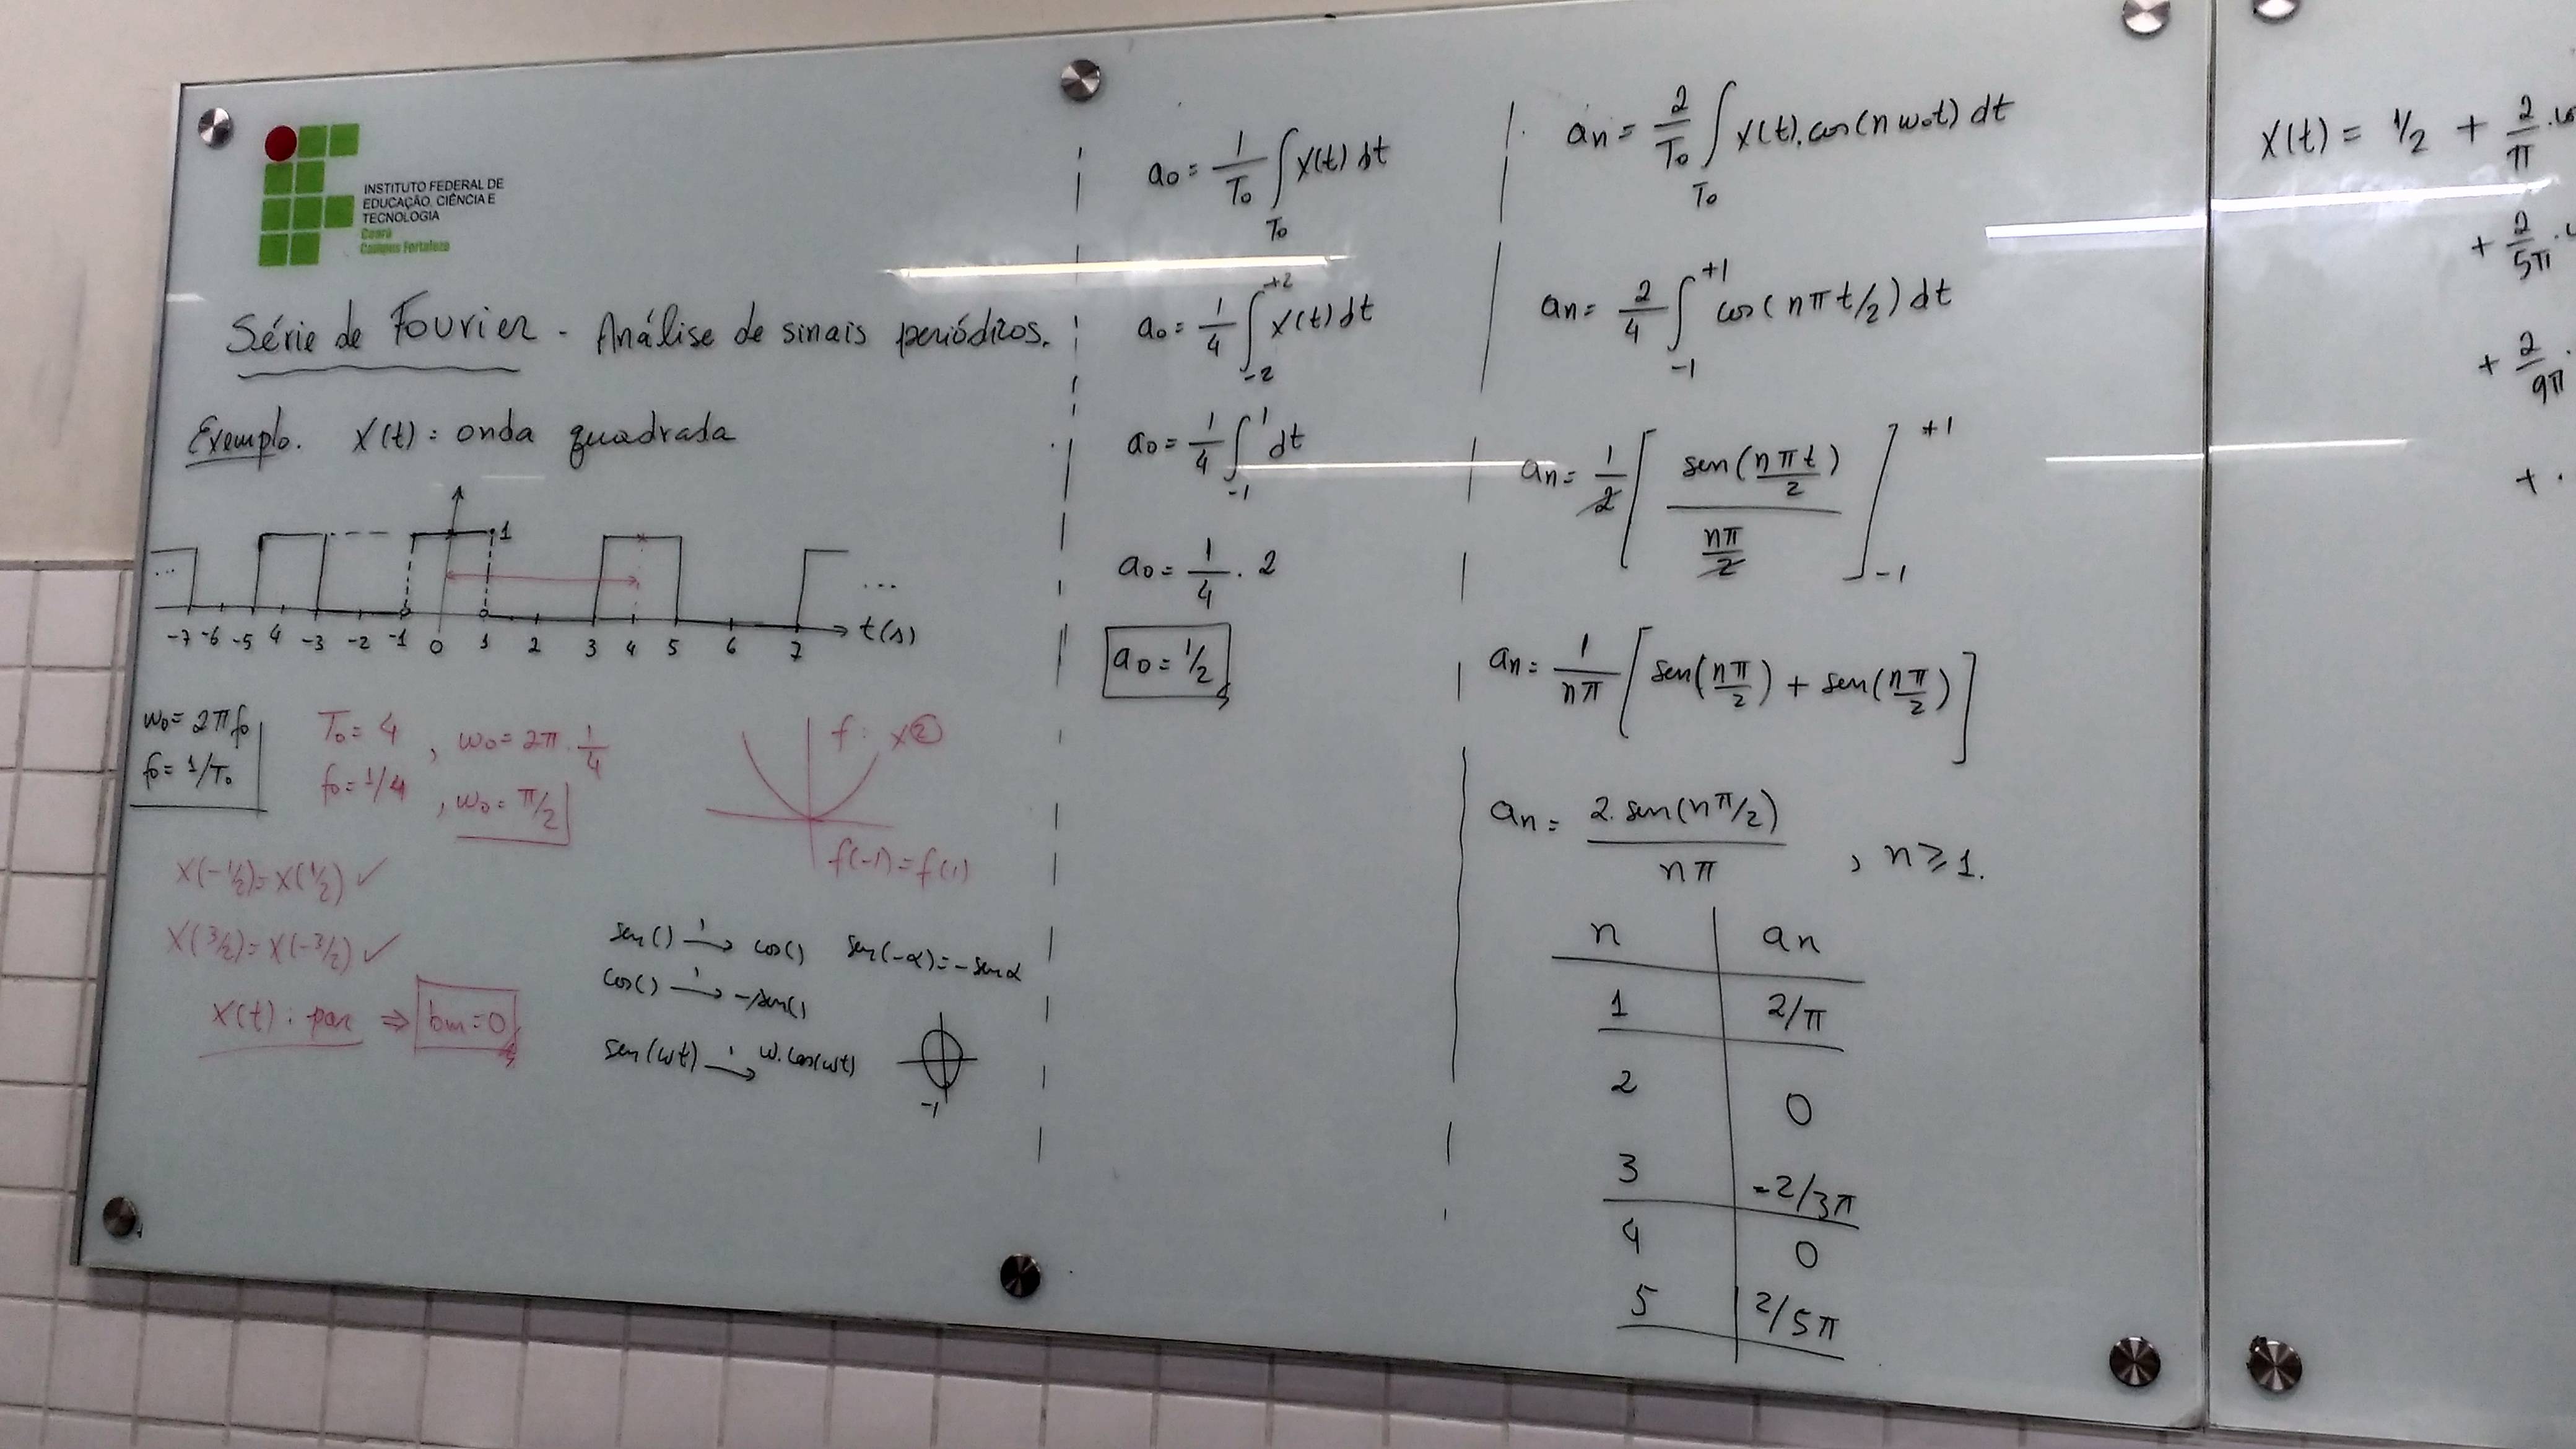 INSTITUTO FEDERAL DE
EDUCAÇÃO, CIÊNCIA E
TECNOLOGIA
Ceará
Campus Fortaleza
Série de Fourier - Análise de sinais periódicos.
Exemplo. X(t): onda quadrada
1
... ...
-7 -6 -5 4 -3 -2 -1 0 1 2 3 4 5 6 7 t(s)
ω0 = 2πf0
f0 = 1/T0
T0 = 4 , ω0 = 2π . 1/4
f0 = 1/4 , ω0 = π/2
f: x²
f(-1) = f(1)
X(-1/2) = X(1/2) ✓
X(3/2) = X(-3/2) ✓
X(t): par ⇒ bm = 0
sen() →' cos() sen(-α) = -sen α
cos() →' -sen()
sen(ωt) →' ω.cos(ωt)
-1
a0 = 1/T0 ∫T0 X(t) dt
a0 = 1/4 ∫-2^+2 X(t) dt
a0 = 1/4 ∫-1^1 dt
a0 = 1/4 . 2
a0 = 1/2
an = 2/T0 ∫T0 X(t).cos(nω0t) dt
an = 2/4 ∫-1^+1 cos(nπt/2) dt
an = 1/2 [ sen(nπt/2) / (nπ/2) ]-1^+1
an = 1/nπ [ sen(nπ/2) + sen(nπ/2) ]
an = 2.sen(nπ/2) / nπ , n ≥ 1.
n an
1 2/π
2 0
3 -2/3π
4 0
5 2/5π
X(t) = 1/2 + 2/π .
+ 2/5π .
+ 2/9π .
+ .